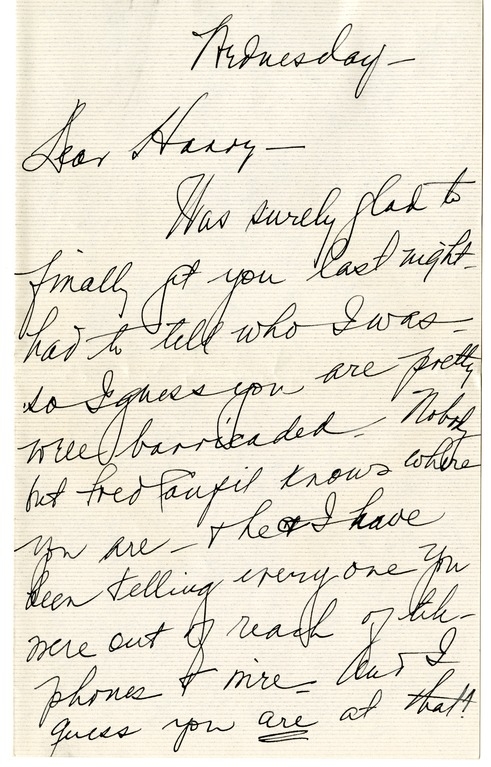 Wednesday—
Dear Harry—
Was surely glad to
finally get you last night-
had to tell who I was—
so I guess you are pretty
well barricaded— Nobody
but Fred Canfil knows where
you are — & he & I have
been telling every one you
were out of reach of tele-
phones & wire— And I
guess you are at that!!